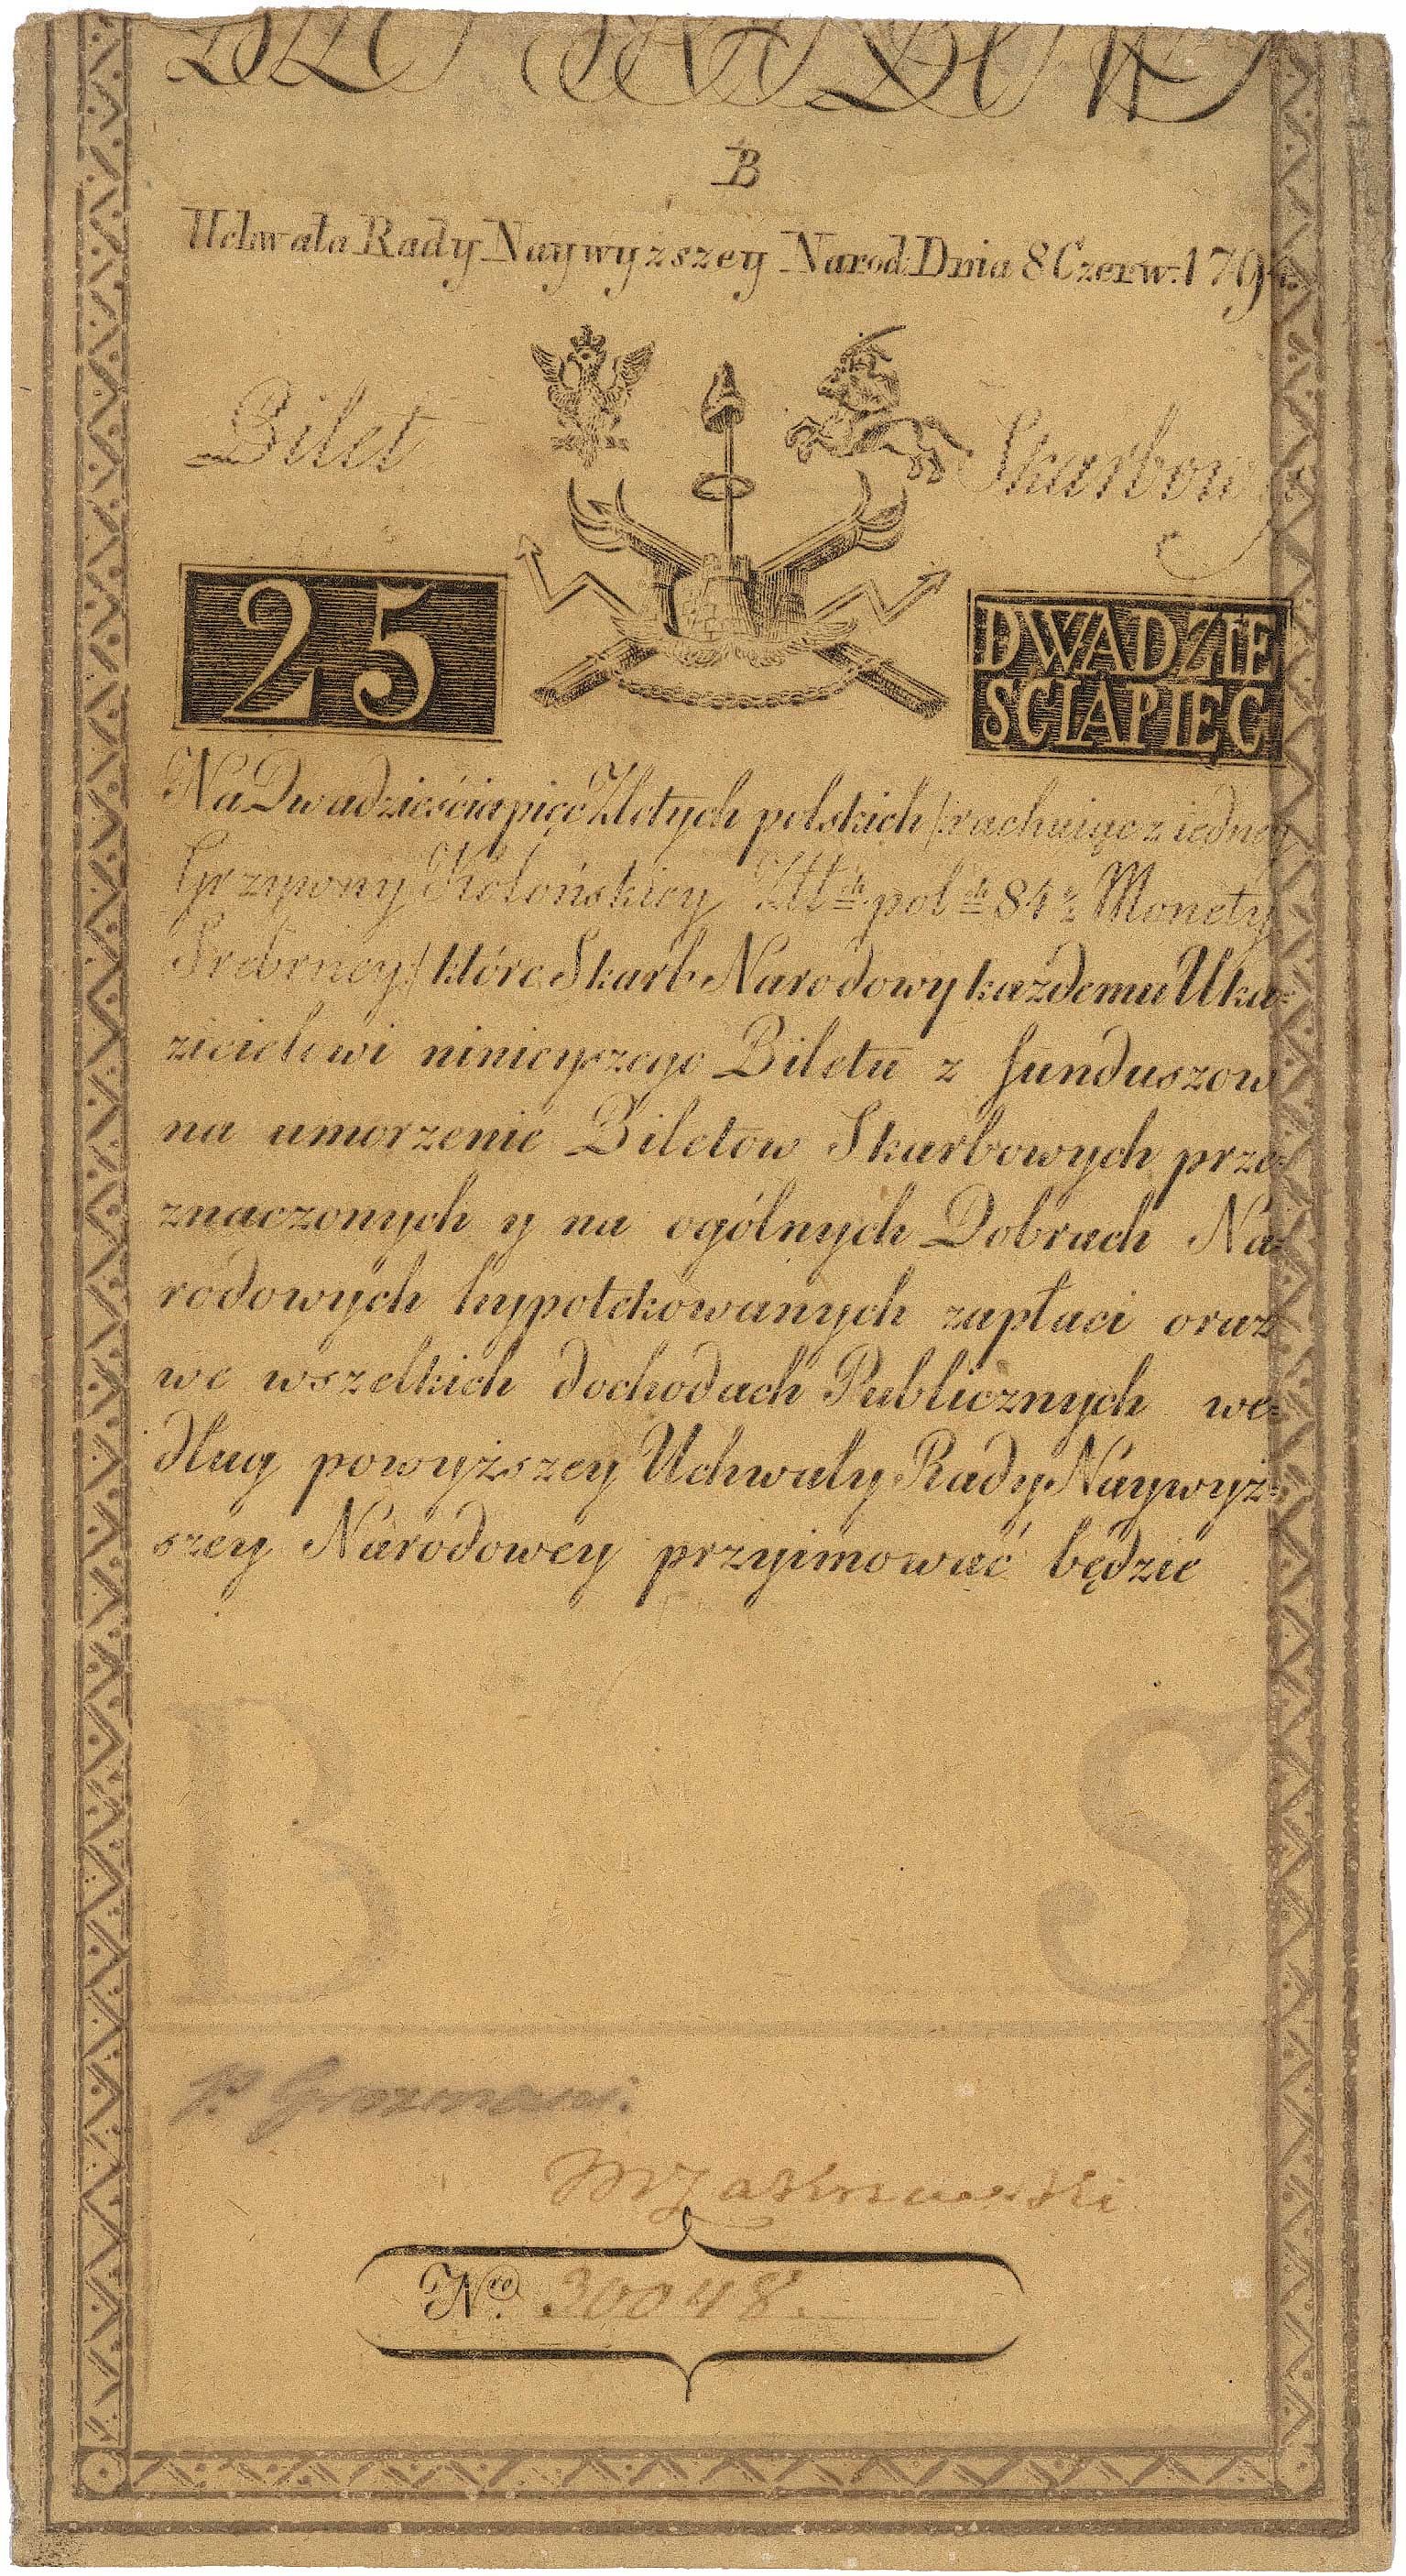 B
Uchwała Rady Naywyzszey Narod: Dnia 8 Czerw: 1794.
Bilet Skarbowy
25
DWADZIE
SCIAPIEC
Na Dwadzieściapięć Złotych polskich /rachuiąc z iedney
Grzywny Kolońskiey Złł.ch pol.ch 84½ Monety
Srebrney/ które Skarb Narodowy każdemu Uka=
zicielowi ninieyszego Biletu z funduszow
na umorzenie Biletow Skarbowych prze=
znaczonych y na ogólnych Dobrach Na=
rodowych hypotekowanych zapłaci oraz
we wszelkich dochodach Publicznych we=
dług powyższey Uchwały Rady Naywyż=
szey Narodowey przyimować będzie
B S
Nro. 30048.